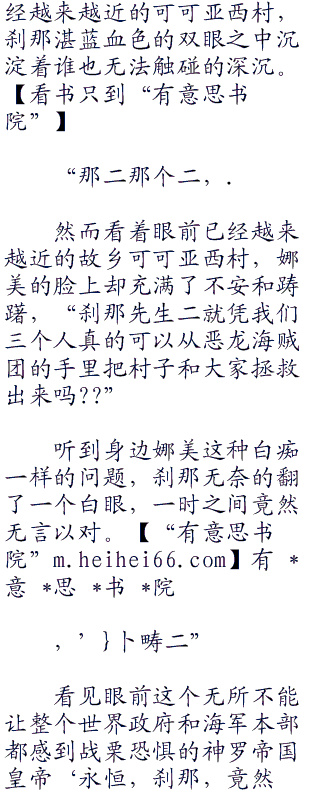 经越来越近的可可亚西村，
刹那湛蓝血色的双眼之中沉
淀着谁也无法触碰的深沉。
【看书只到“有意思书
院”】
“那二那个二，．
然而看着眼前已经越来
越近的故乡可可亚西村，娜
美的脸上却充满了不安和踌
躇，“刹那先生二就凭我们
三个人真的可以从恶龙海贼
团的手里把村子和大家拯救
出来吗??”
听到身边娜美这种白痴
一样的问题，刹那无奈的翻
了一个白眼，一时之间竟然
无言以对。【“有意思书
院”m.heihei66.com】有 *
意 *思 *书 *院
，’}卜畴二”
看见眼前这个无所不能
让整个世界政府和海军本部
都感到战栗恐惧的神罗帝国
皇帝‘永恒，刹那，竟然